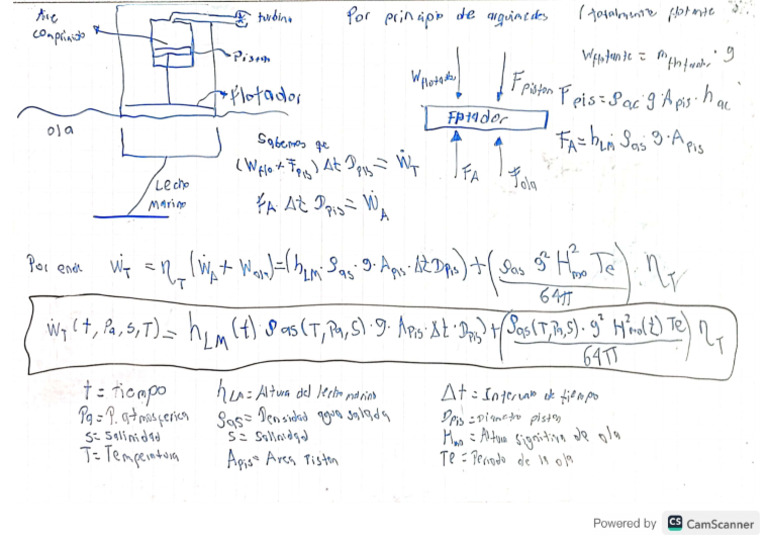 Aire comprimido
turbina
Piston
Flotador
ola
Lecho marino
Por principio de arquimedes (totalmente flotante
W_flotante = m_flotador · g
W_flotador
F_piston
F_pis = ρ_ac · g · A_pis · h_ac
Flotador
F_A = h_LM · ρ_as · g · A_pis
F_A
F_ola
Sabemos qe
(W_flo + F_pis) Δt D_pis = Ẇ_T
F_A · Δt D_pis = Ẇ_A
Por ende Ẇ_T = η_T (Ẇ_A + W_ola) = (h_LM · ρ_as · g · A_pis · Δt D_pis) + (ρ_as g² H²_mo Te / 64π) · η_T
Ẇ_T (t, Pa, S, T) = h_LM(t) ρ_as(T, Pa, S) · g · A_pis · Δt · D_pis) + (ρ_as(T, Pa, S) · g² H²_mo(t) Te / 64π) η_T
t = tiempo
Pa = P. atmosferica
S = salinidad
T = Temperatura
h_LM = Altura del lecho marino
ρ_as = Densidad agua salada
S = Salinidad
A_pis = Area Piston
Δt = Intervalo de tiempo
D_pis = Diametro piston
H_mo = Altura signitiva de ola
Te = Periodo de la ola
Powered by CS CamScanner